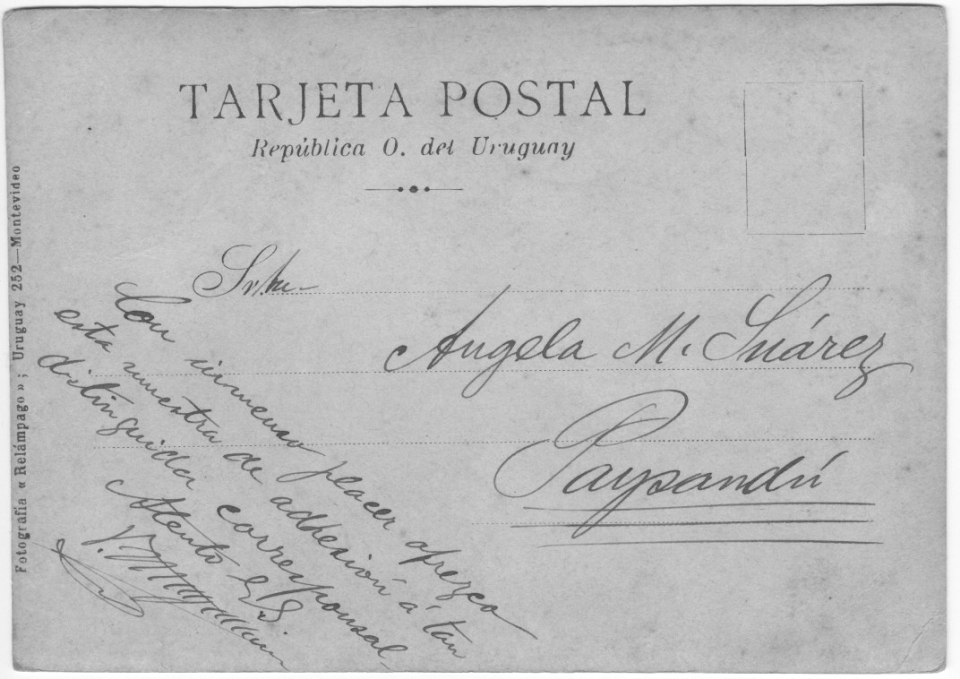 TARJETA POSTAL
República O. del Uruguay
Fotografía « Relámpago » ; Uruguay 252—Montevideo
Srta
Angela M. Suárez
Paysandú
Con inmenso placer ofrezco
esta muestra de adhesión á tan
distinguida corresponsal-
Atento